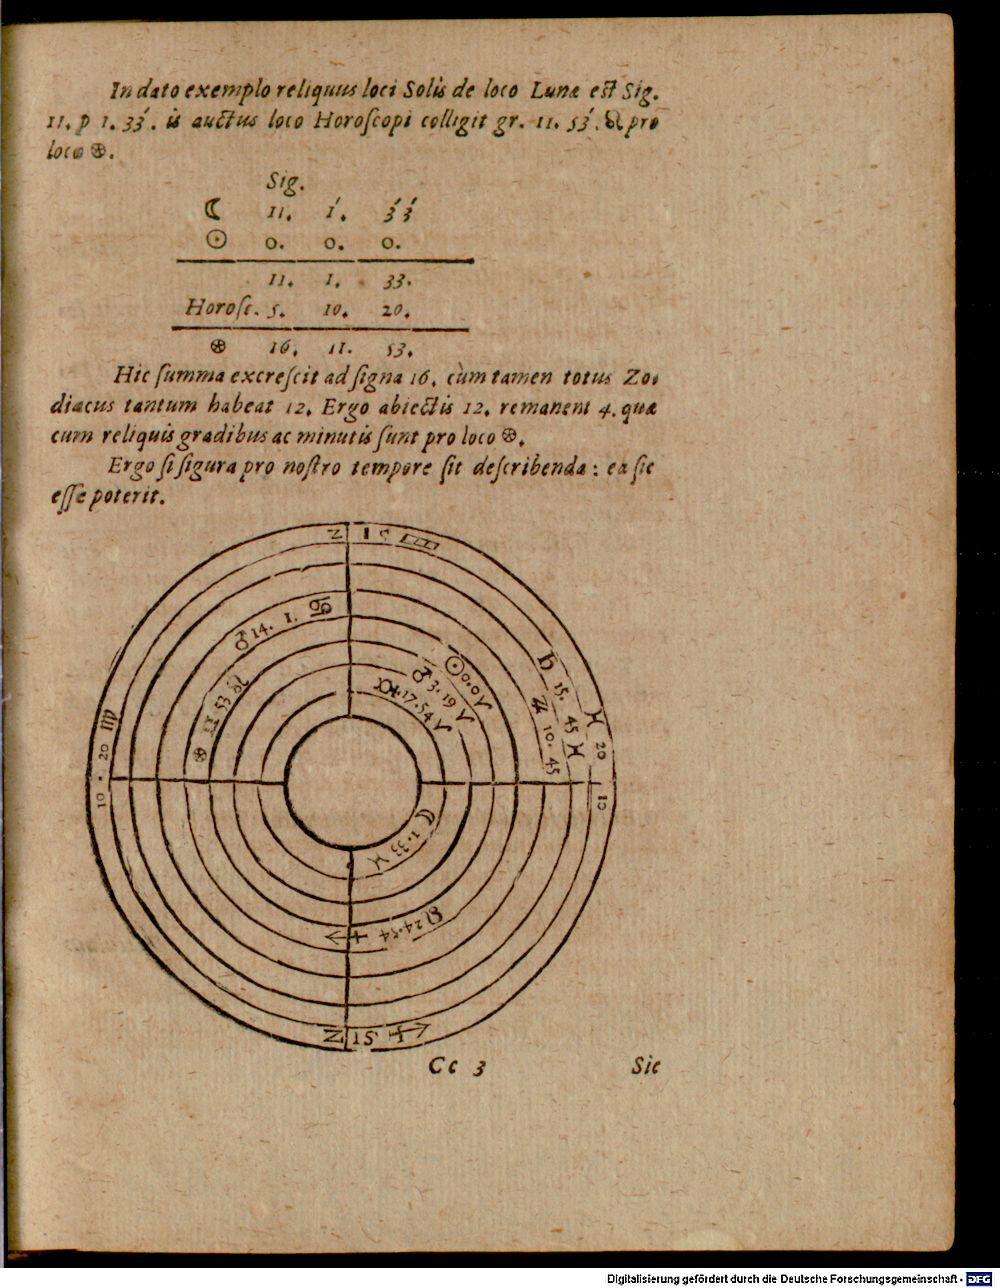 In dato exemplo reliquus loci Solis de loco Lunæ est Sig.
11. p 1. 33′. is auctus loco Horoſcopi colligit gr. 11. 53′. ♌ pro
loco ⊗.
Sig.
☾ 11. 1′. 3′3′
☉ 0. 0. 0.
11. 1. 33.
Horoſc. 5. 10. 20.
⊗ 16. 11. 53.
Hic ſumma excreſcit ad ſigna 16, cùm tamen totus Zo-
diacus tantum habeat 12. Ergo abiectis 12. remanent 4. quæ
cum reliquis gradibus ac minutis ſunt pro loco ⊗.
Ergo ſi figura pro noſtro tempore ſit deſcribenda: ea ſic
eſſe poterit.
♂ 14. 1. ♋
⊗ 11 53 ♌
☉ 0.0 ♈
♂ 3. 19 ♈
17.54 ♈
♄ 15. 45 ♓
♃ 10. 45
♓ 20
10
10 . 20 ♍
☾ 1.33 ♓
24.54 ♐
15 ♐
Cc 3 Sic
Digitalisierung gefördert durch die Deutsche Forschungsgemeinschaft - DFG